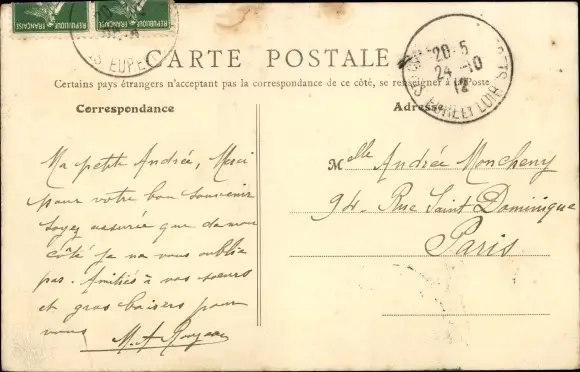 REPUBLIQUE FRANÇAISE
REPUBLIQUE FRANÇAISE
CARTE POSTALE
Certains pays étrangers n'acceptant pas la correspondance de ce côté, se renseigner à la Poste
Correspondance
Adresse
20-5
24-10
12
EURE ET LOIR
Ma petite Andrée, Merci
pour votre bon souvenir
soyez assurée que de mon
côté je ne vous oublie
pas. Amitiés à vos soeurs
et gros baisers pour
vous
M. A
Melle Andrée Moncheny
94. Rue Saint Dominique
Paris